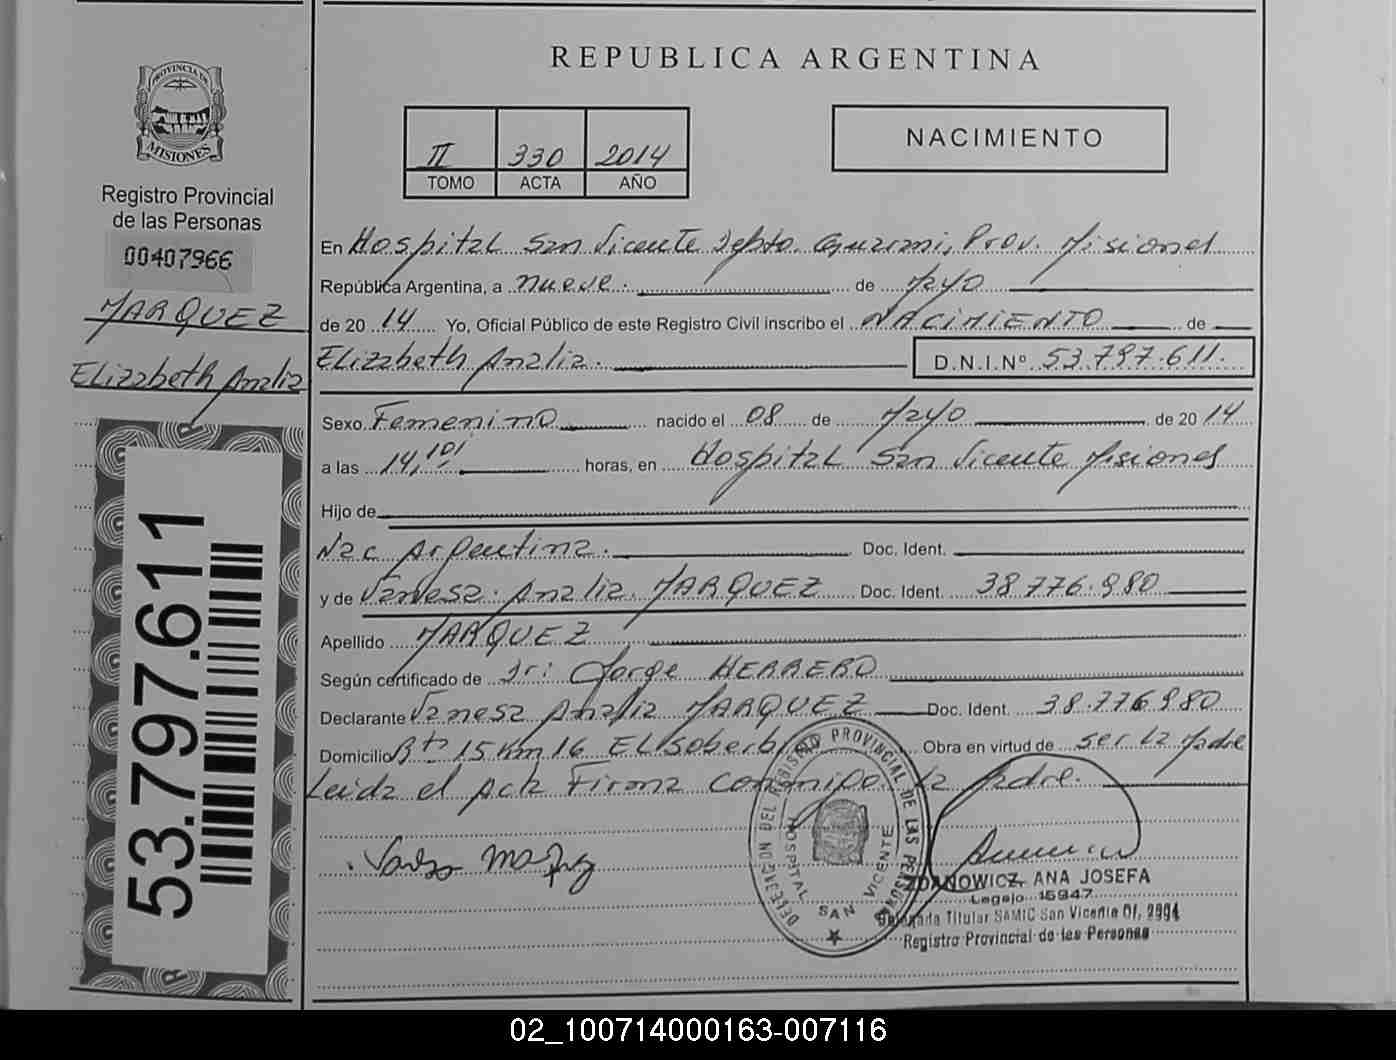 REPUBLICA ARGENTINA
PROVINCIA DE
MISIONES
Registro Provincial
de las Personas
00407966
MARQUEZ
Elizabeth Analia
53.797.611
II 330 2014
TOMO ACTA AÑO
NACIMIENTO
En Hospital San Vicente Depto. Guarani, Prov. Misiones
República Argentina, a nueve. de Mayo
de 2014 Yo, Oficial Público de este Registro Civil inscribo el NACIMIENTO de
Elizabeth Analia. D.N.I.Nº 53.797.611.
Sexo Femenino nacido el 08 de Mayo de 2014
a las 14,10' horas, en Hospital San Vicente Misiones
Hijo de
Nac Argentina. Doc. Ident.
y de Vanesa Analia MARQUEZ Doc. Ident. 38.776.980
Apellido MARQUEZ
Según certificado de Dr: Jorge HERRERO
Declarante Vanesa Analia MARQUEZ Doc. Ident. 38.776.980
Domicilio Bº 15 Km 16 El Soberbio Obra en virtud de ser la Madre
Leida el Acta Firma conmigo la Madre.
DELEGACION DEL REGISTRO PROVINCIAL DE LAS PERSONAS
HOSPITAL SAN VICENTE
ANA JOSEFA
Legajo 15947
Delegada Titular SAMIC San Vicente Of. 2994
Registro Provincial de las Personas
02_100714000163-007116